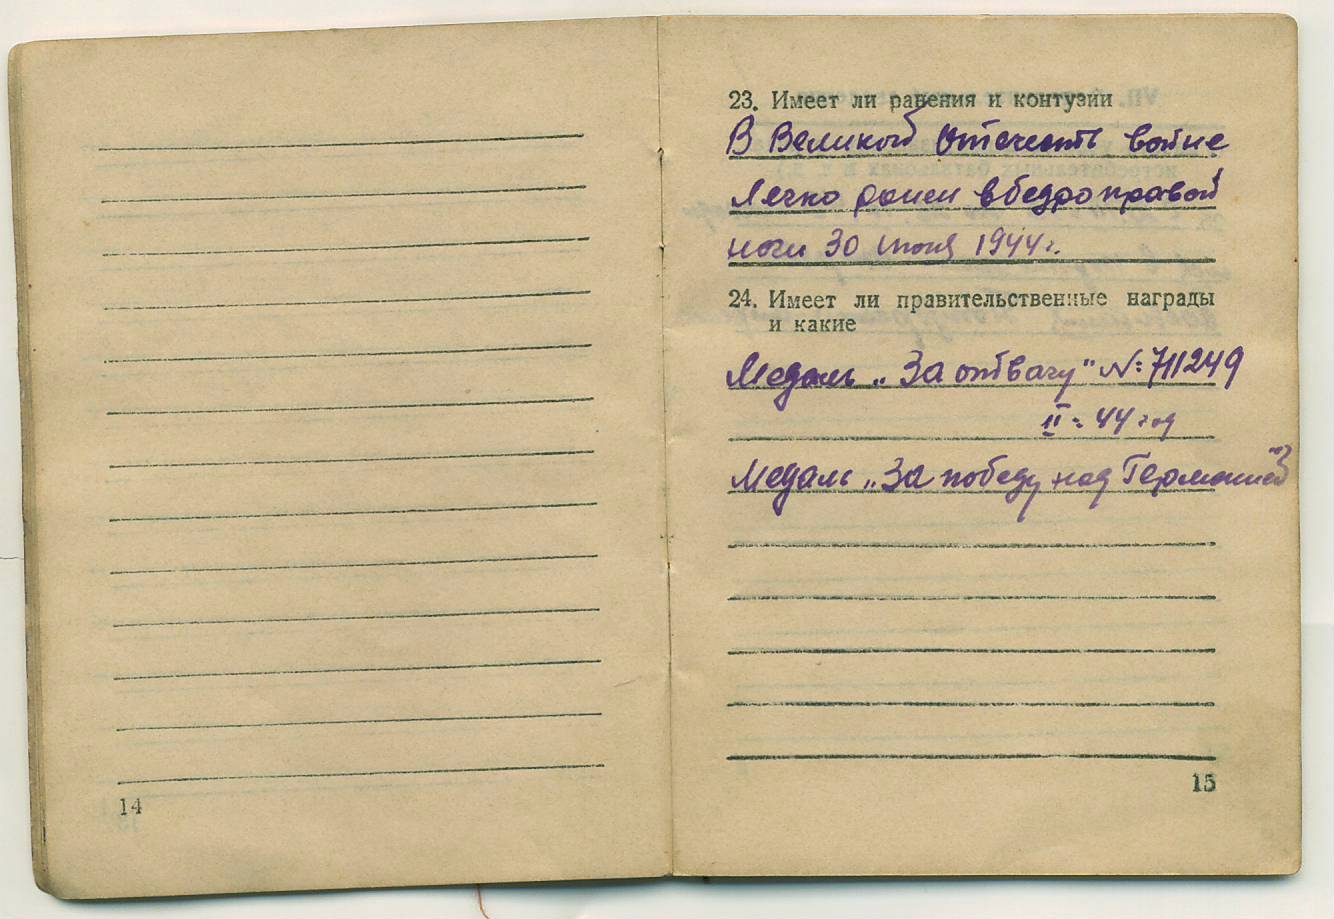 14
23. Имеет ли ранения и контузии
В Великой Отечеств войне
Легко ранен в бедро правой
ноги 30 июня 1944 г.
24. Имеет ли правительственные награды
и какие
Медаль „За отвагу" №711249
II = 44 год
Медаль „За победу над Германией"
15